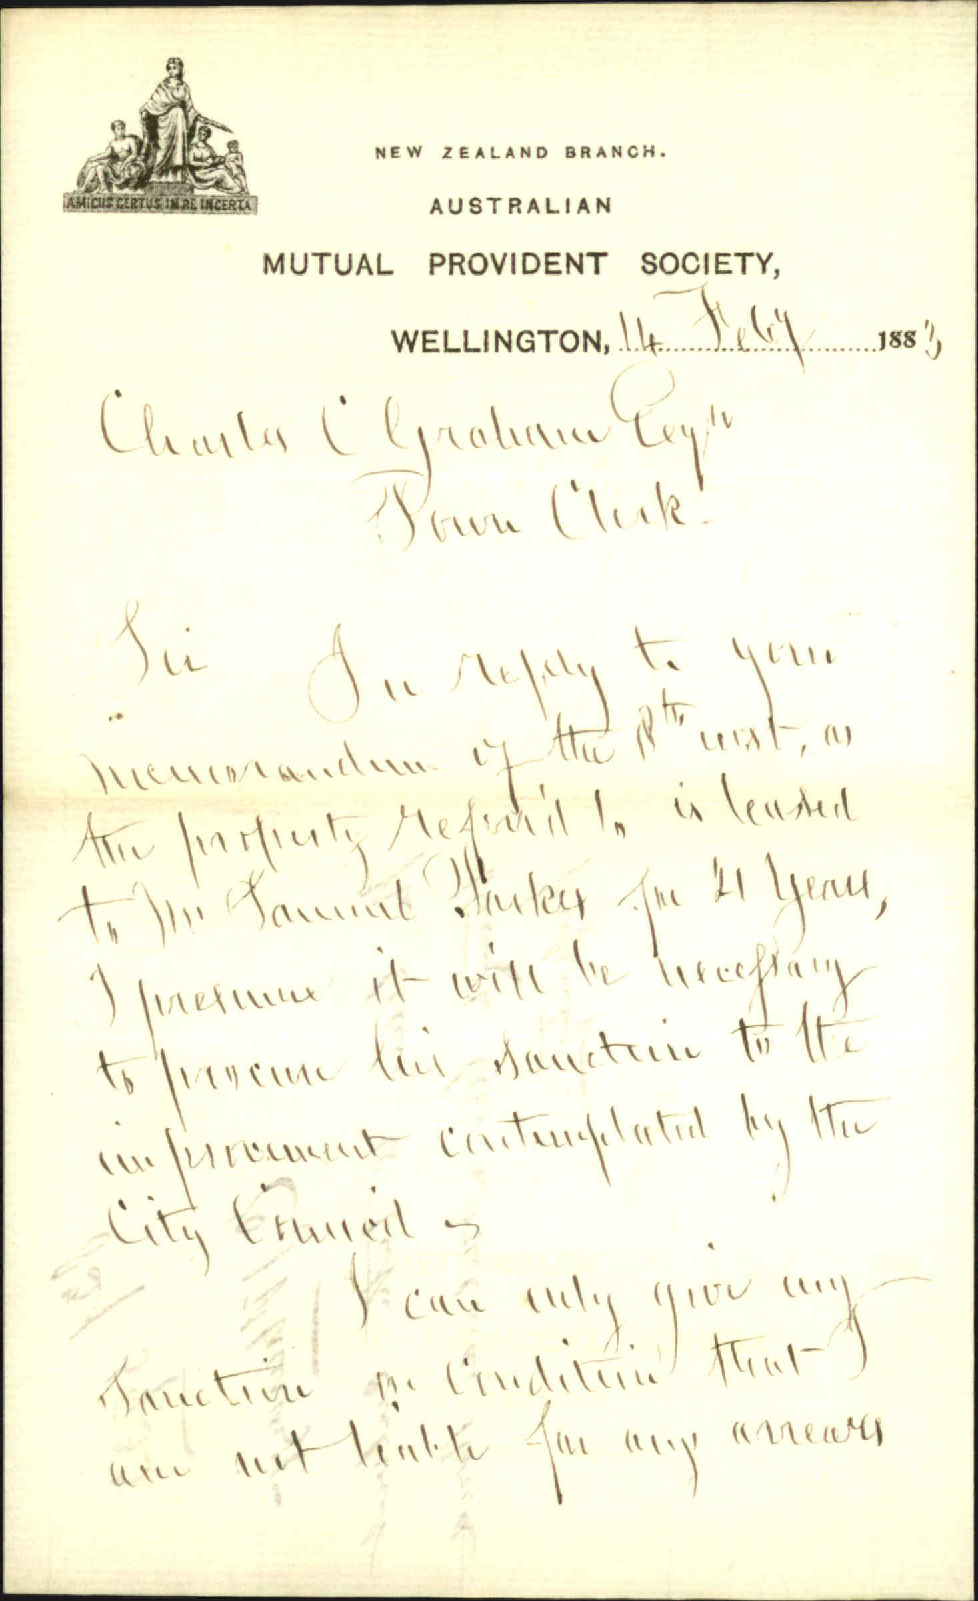 AMICUS CERTUS IN RE INCERTA
NEW ZEALAND BRANCH.
AUSTRALIAN
MUTUAL PROVIDENT SOCIETY,
WELLINGTON, 14 Feby 1883
Charles C Graham Esqre
Town Clerk.
Sir In reply to your
memorandum of the 8th inst, as
the property referr'd to is leased
to Mr Samuel Parker for 21 Years,
I presume it will be necessary
to procure his sanction to the
improvement contemplated by the
City Council
I can only give my
sanction on condition that I
am not liable for any arrears